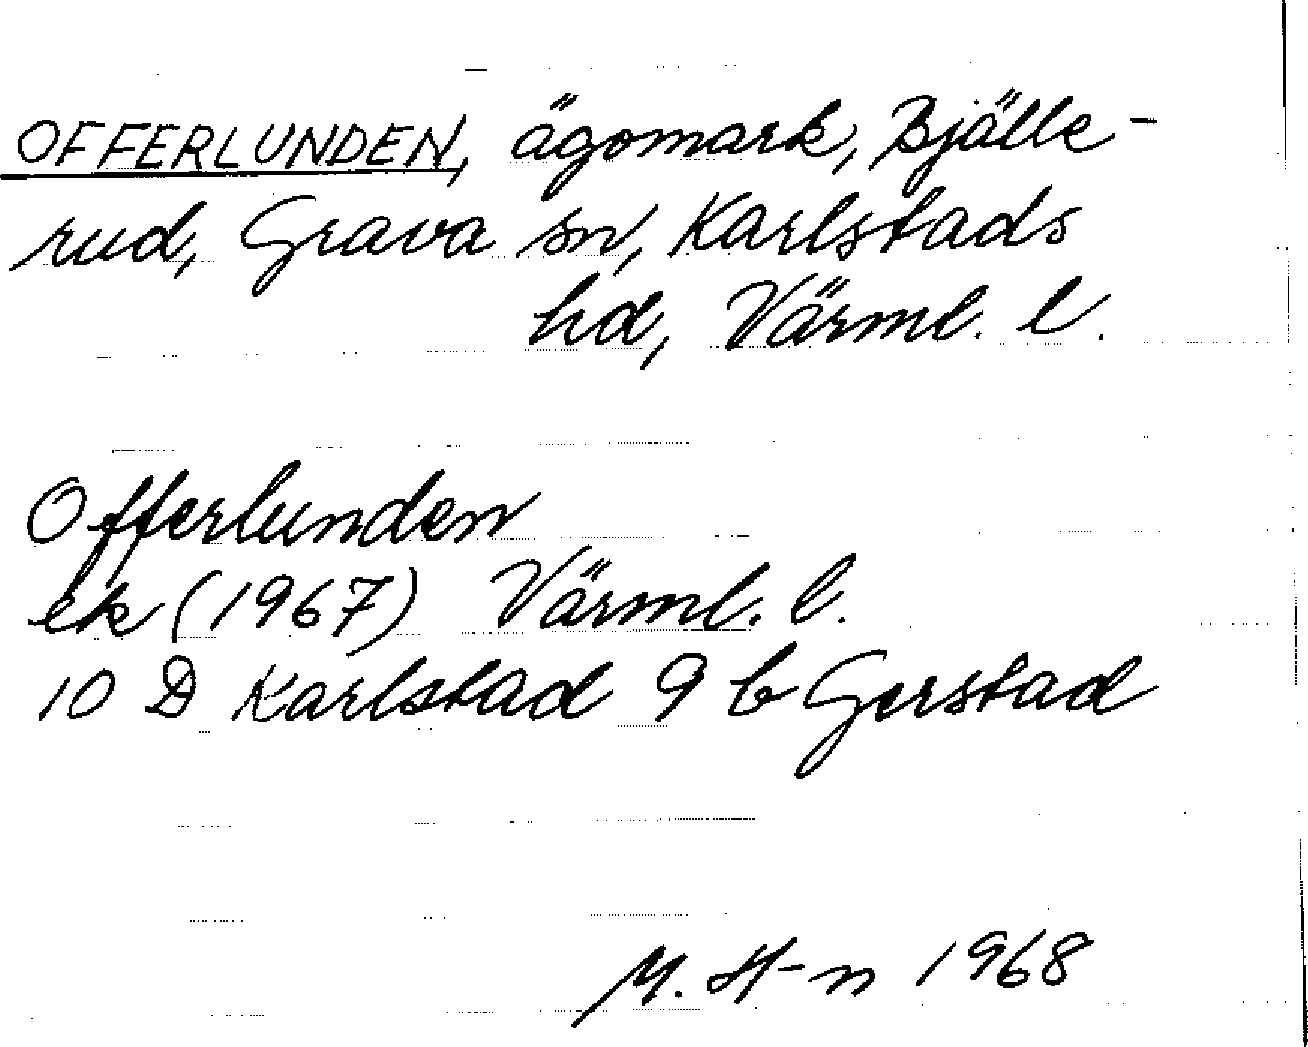 OFFERLUNDEN, ägomark, Bjälle-
rud, Grava sn, Karlstads
hd, Värml. l.
Offerlunden
ek (1967) Värml. l.
10 D Karlstad 9 b Gerstad
M. H-n 1968